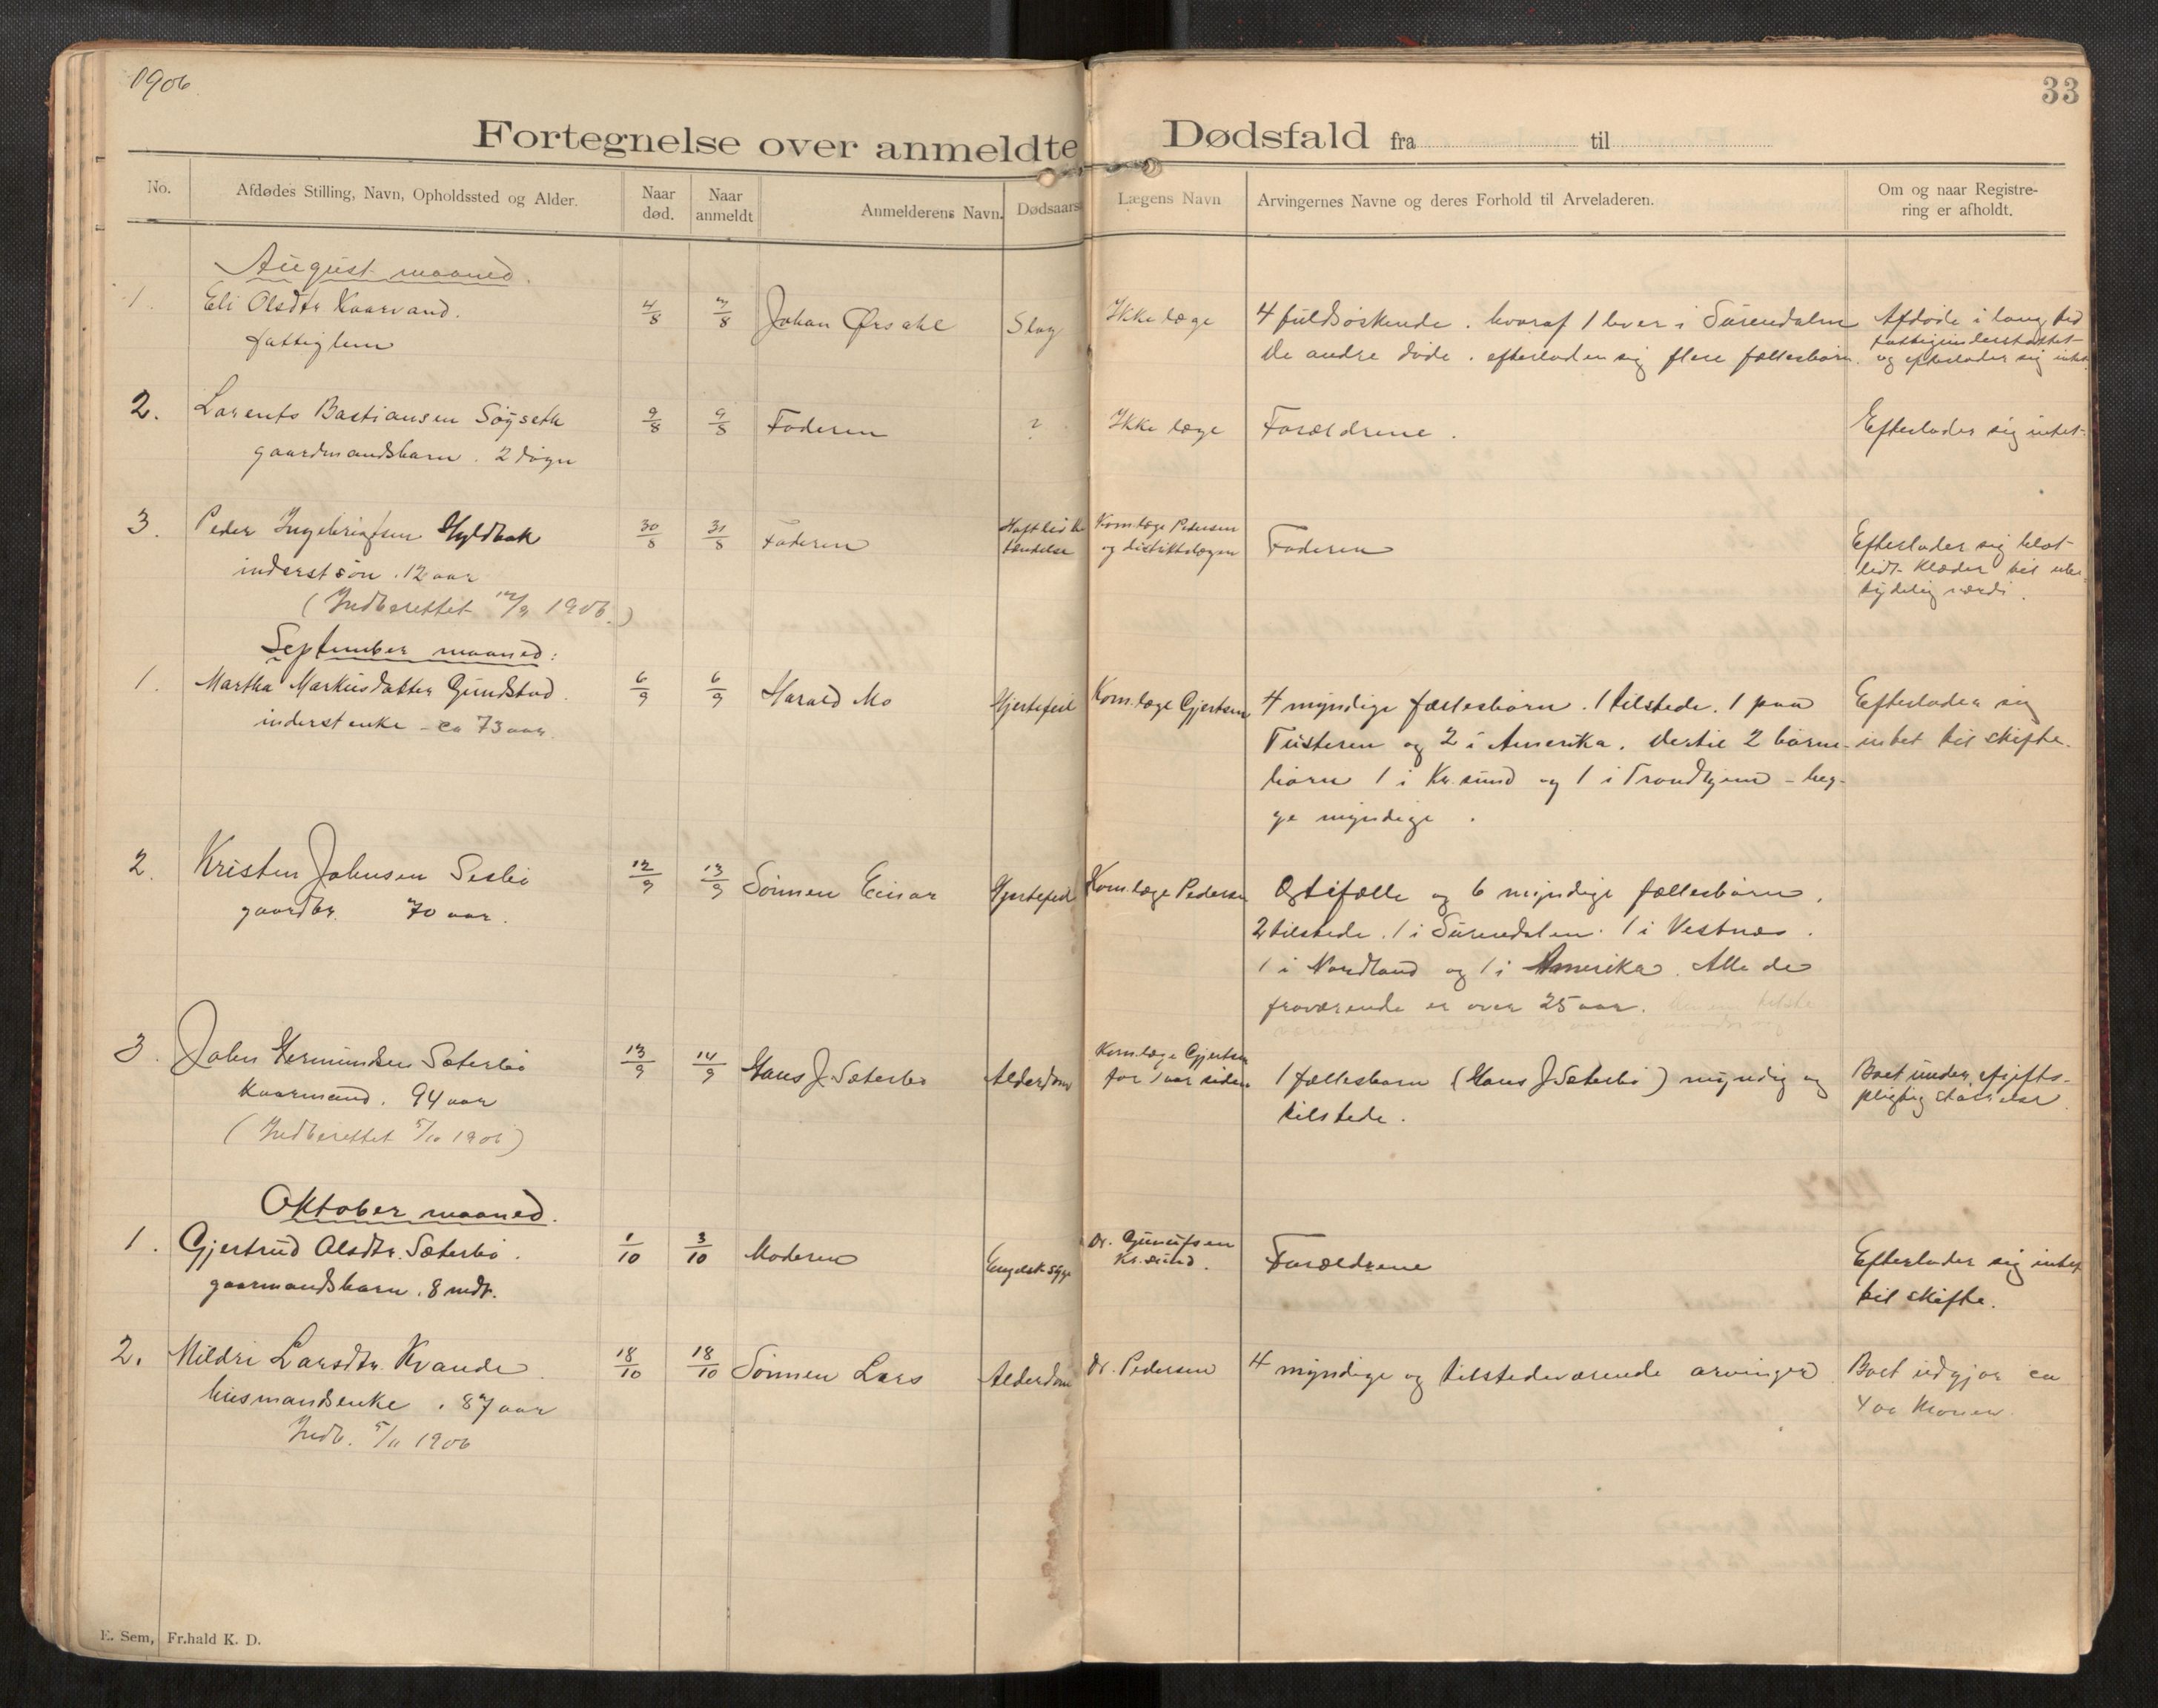 1906
33
Fortegnelse over anmeldte Dødsfald fra til
No.
Afdødes Stilling, Navn, Opholdssted og Alder.
Naar død.
Naar anmeldt
Anmelderens Navn.
Dødsaars
Lægens Navn
Arvingernes Navne og deres Forhold til Arveladeren.
Om og naar Registre-
ring er afholdt.
August maaned.
1. Eli Olsdtr Kvarvand. 4/8 7/8 Johan Ørsahl Slag Ikke læge 4 fuldsøskende. hvoraf 1 lever i Surendalen Afdøde i lang tid
fattiglem De andre døde. efterladen sig flere fællesbørn. og efterlader sig intet
2. Larents Bastiansen Søyseth 9/8 9/8 Faderen ? Ikke læge Forældrene. Efterlader sig intet.
gaardmandsbarn. 2 døgn
3. Peder Ingebrigtsen Hyldbak 30/8 31/8 Faderen Hofteledbe Kom.læge Pedersen Faderen Efterlader sig blot
inderstsøn. 12 aar tændelse og distriktslægen lidt klæder til ube-
(Indberettet 12/9 1906.) tydelig værdi.
September maaned:
1. Martha Markusdatter Gundstad. 6/9 6/9 Harald Mo Hjertefeil Kom.læge Gjertsen 4 myndige fællesbørn. 1 tilstede. 1 paa Efterlader sig
inderst enke - ca 73 aar. Tusteren og 2 i Amerika. Dertil 2 børne- intet til skifte.
børn 1 i Kr.sund og 1 i Trondhjem - beg-
ge myndige.
2. Kristen Johnsen Sesbø 12/9 13/9 Sønnen Einar Hjertefeil Kom.læge Pedersen Ægtefælle og 6 myndige fællesbørn.
gaardbr. 70 aar. 2 tilstede. 1 i Surendalen. 1 i Vestnæs.
1 i Nordland og 1 i Amerika. Alle de
fraværende er over 25 aar.
3. John Hermundsen Sæterbø 13/9 14/9 Hans J. Sæterbø Alderdom Kom.læge Gjertsen for 1 aar siden 1 fællesbarn (Hans J Sæterbø) myndig og Boet under afgifts-
Kaarmand. 94 aar tilstede. pligtig størrelse.
(Indberettet 5/10 1906)
Oktober maaned.
1. Gjertrud Olsdtr. Sæterbø. 1/10 3/10 Moderen Engelsk syge Dr. Kr.sund. Forældrene Efterlader sig intet
gaarmandsbarn. 8 mdr. til skifte.
2. Mildri Larsdtr. Kvande. 18/10 18/10 Sønnen Lars Alderdom Dr. Pedersen 4 myndige og tilstedeværende arvinger Boet udgjør ca
husmandsenke. 87 aar 400 kroner.
Indb. 5/11 1906
E. Sem, Fr.hald K. D.